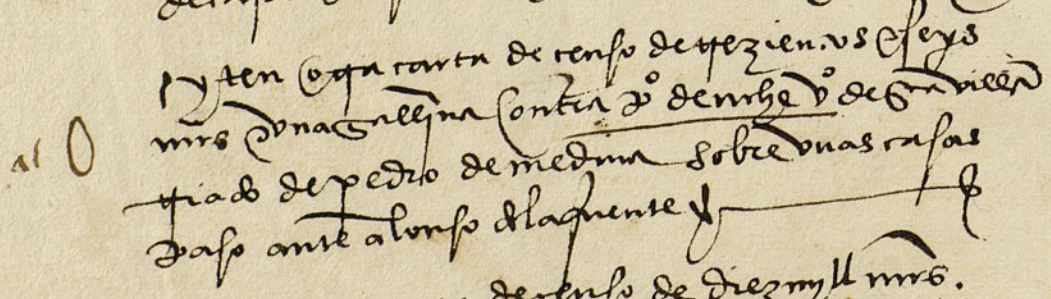 yten otra carta de censo de trezien.os e seys
mrs e una gallina contra po de uche vo de esta villa
criado de pedro de medina sobre unas casas
paso ante alonso de la fuente
de censo de diez myll mrs.